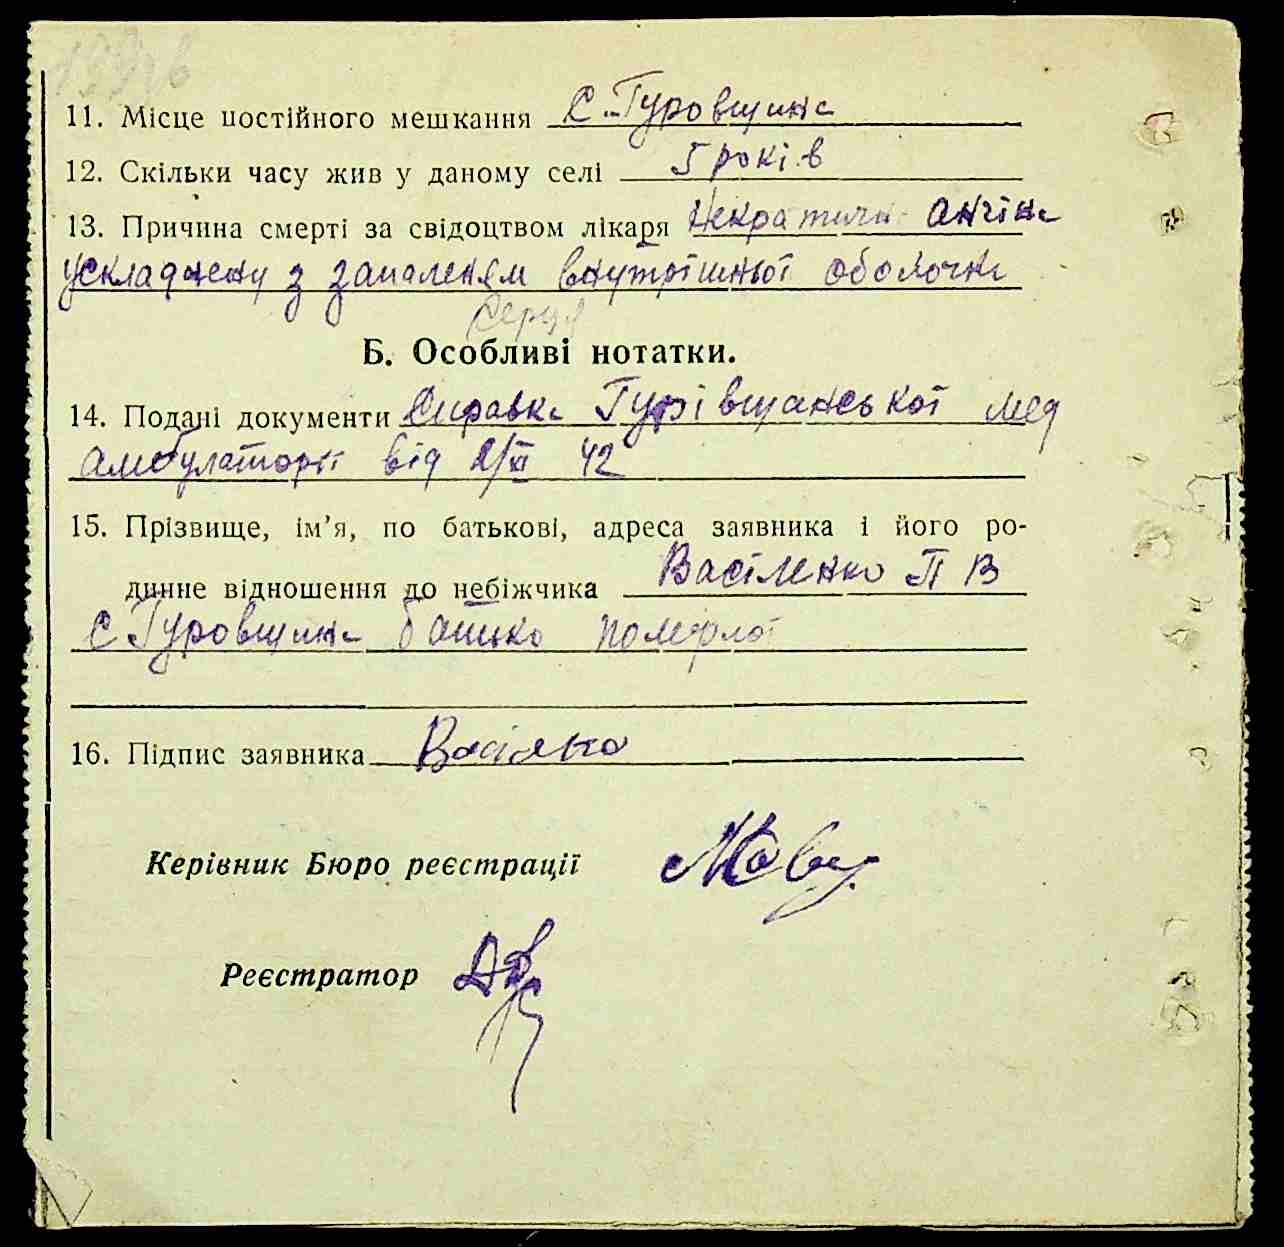 11. Місце постійного мешкання с. Гуровщина
12. Скільки часу жив у даному селі 5 років
13. Причина смерті за свідоцтвом лікаря Некратична ангіна
ускладнену з запаленям внутрішньої оболочки
серця
Б. Особливі нотатки.
14. Подані документи Справка Гурівщанської мед
амбулаторії від 2/XI 42
15. Прізвище, ім’я, по батькові, адреса заявника і його ро-
динне відношення до небіжчика Васіленко П В
с Гуровщина батько померлої
16. Підпис заявника
Керівник Бюро реєстрації
Реєстратор